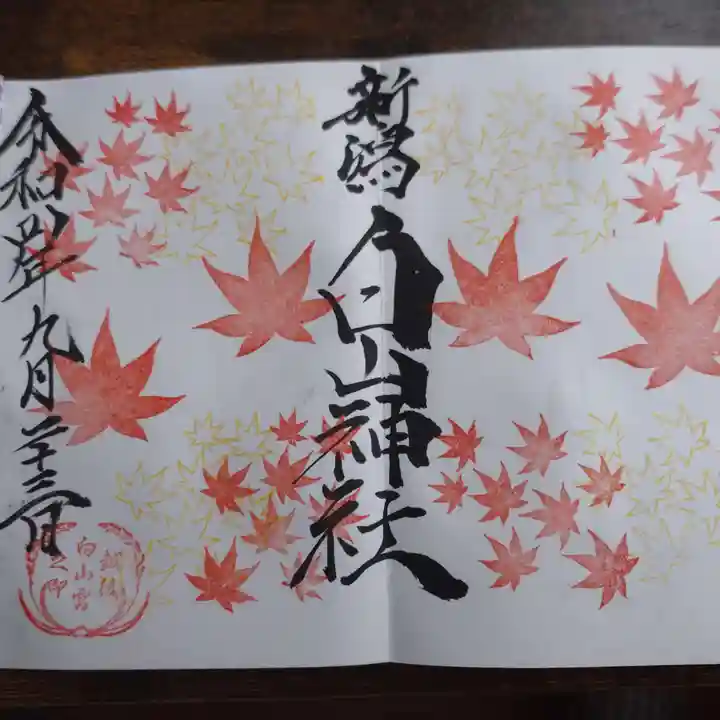 新潟
白山神社
令和四年九月二十三日
越後
白山宮